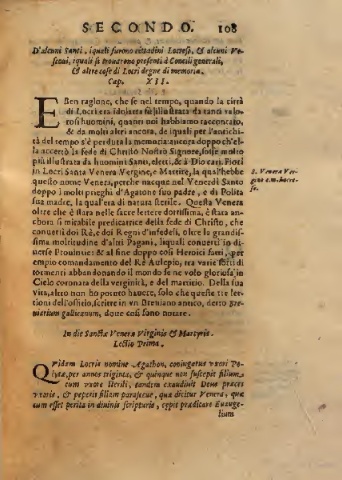 SECONDO. 108
D'alcuni Santi, iquali furono cittadini Locresi, & alcuni Ve-
scoui, iquali si trouarono presenti à Concili generali,
& altre cose di Locri degne di memoria.
Cap. XII.
E Ben ragione, che se nel tempo, quando la città
di Locri era idolatra fù illustrata da tanti valo-
rosi huomini, quanti noi habbiamo raccontato,
& da molti altri ancora, de iquali per l'antichi-
tà del tempo s'è perduta la memoria: ancora doppo ch'el-
la accettò la fede di Christo Nostro Signore, fusse molto
più illustrata da huomini Santi, eletti, & à Dio cari. Fiorì
in Locri Santa Venera Vergine, e Martire, la qual'hebbe
questo nome Venera, perche nacque nel Venerdì Santo
doppo i molti prieghi d'Agatone suo padre, e di Polita
sua madre, la qual'era di natura sterile. Questa Venera
oltre che è stata nelle sacre lettere dottissima, è stata an-
chora sì mirabile predicatrice della fede di Christo, che
conuertì doi Rè, e doi Regni d'infedeli, oltre la grandis-
sima moltitudine d'altri Pagani, liquali conuertì in di-
uerse Prouincie: & al fine doppo così Heroici fatti, per
empio comandamento del Rè Asclepio, tra varie sorti di
tormenti abbandonando il mondo se ne volò gloriosa in
Cielo coronata della verginità, e del martirio. Della sua
vita, altro non hò potuto hauere, solo che queste tre let-
tioni dell'officio, scritte in vn Breuiario antico, detto Bre-
uiarium gallicanum, doue così sono notate.
S. Venera Ver-
gine e m. locre-
se.
In die Sanctæ Veneræ Virginis & Martyris.
Lectio Prima.
Quidam Locris nomine Agathon, coniugatus vxori Po-
lytæ, per annos triginta, & quinque non suscepit filium,
cum vxore sterili, tandem exaudiuit Deus præces
vxoris, & peperit filiam parasceue, quæ dicitur Venera, quæ
cum esset perita in diuinis scripturis, cepit prædicare Euange-
lium